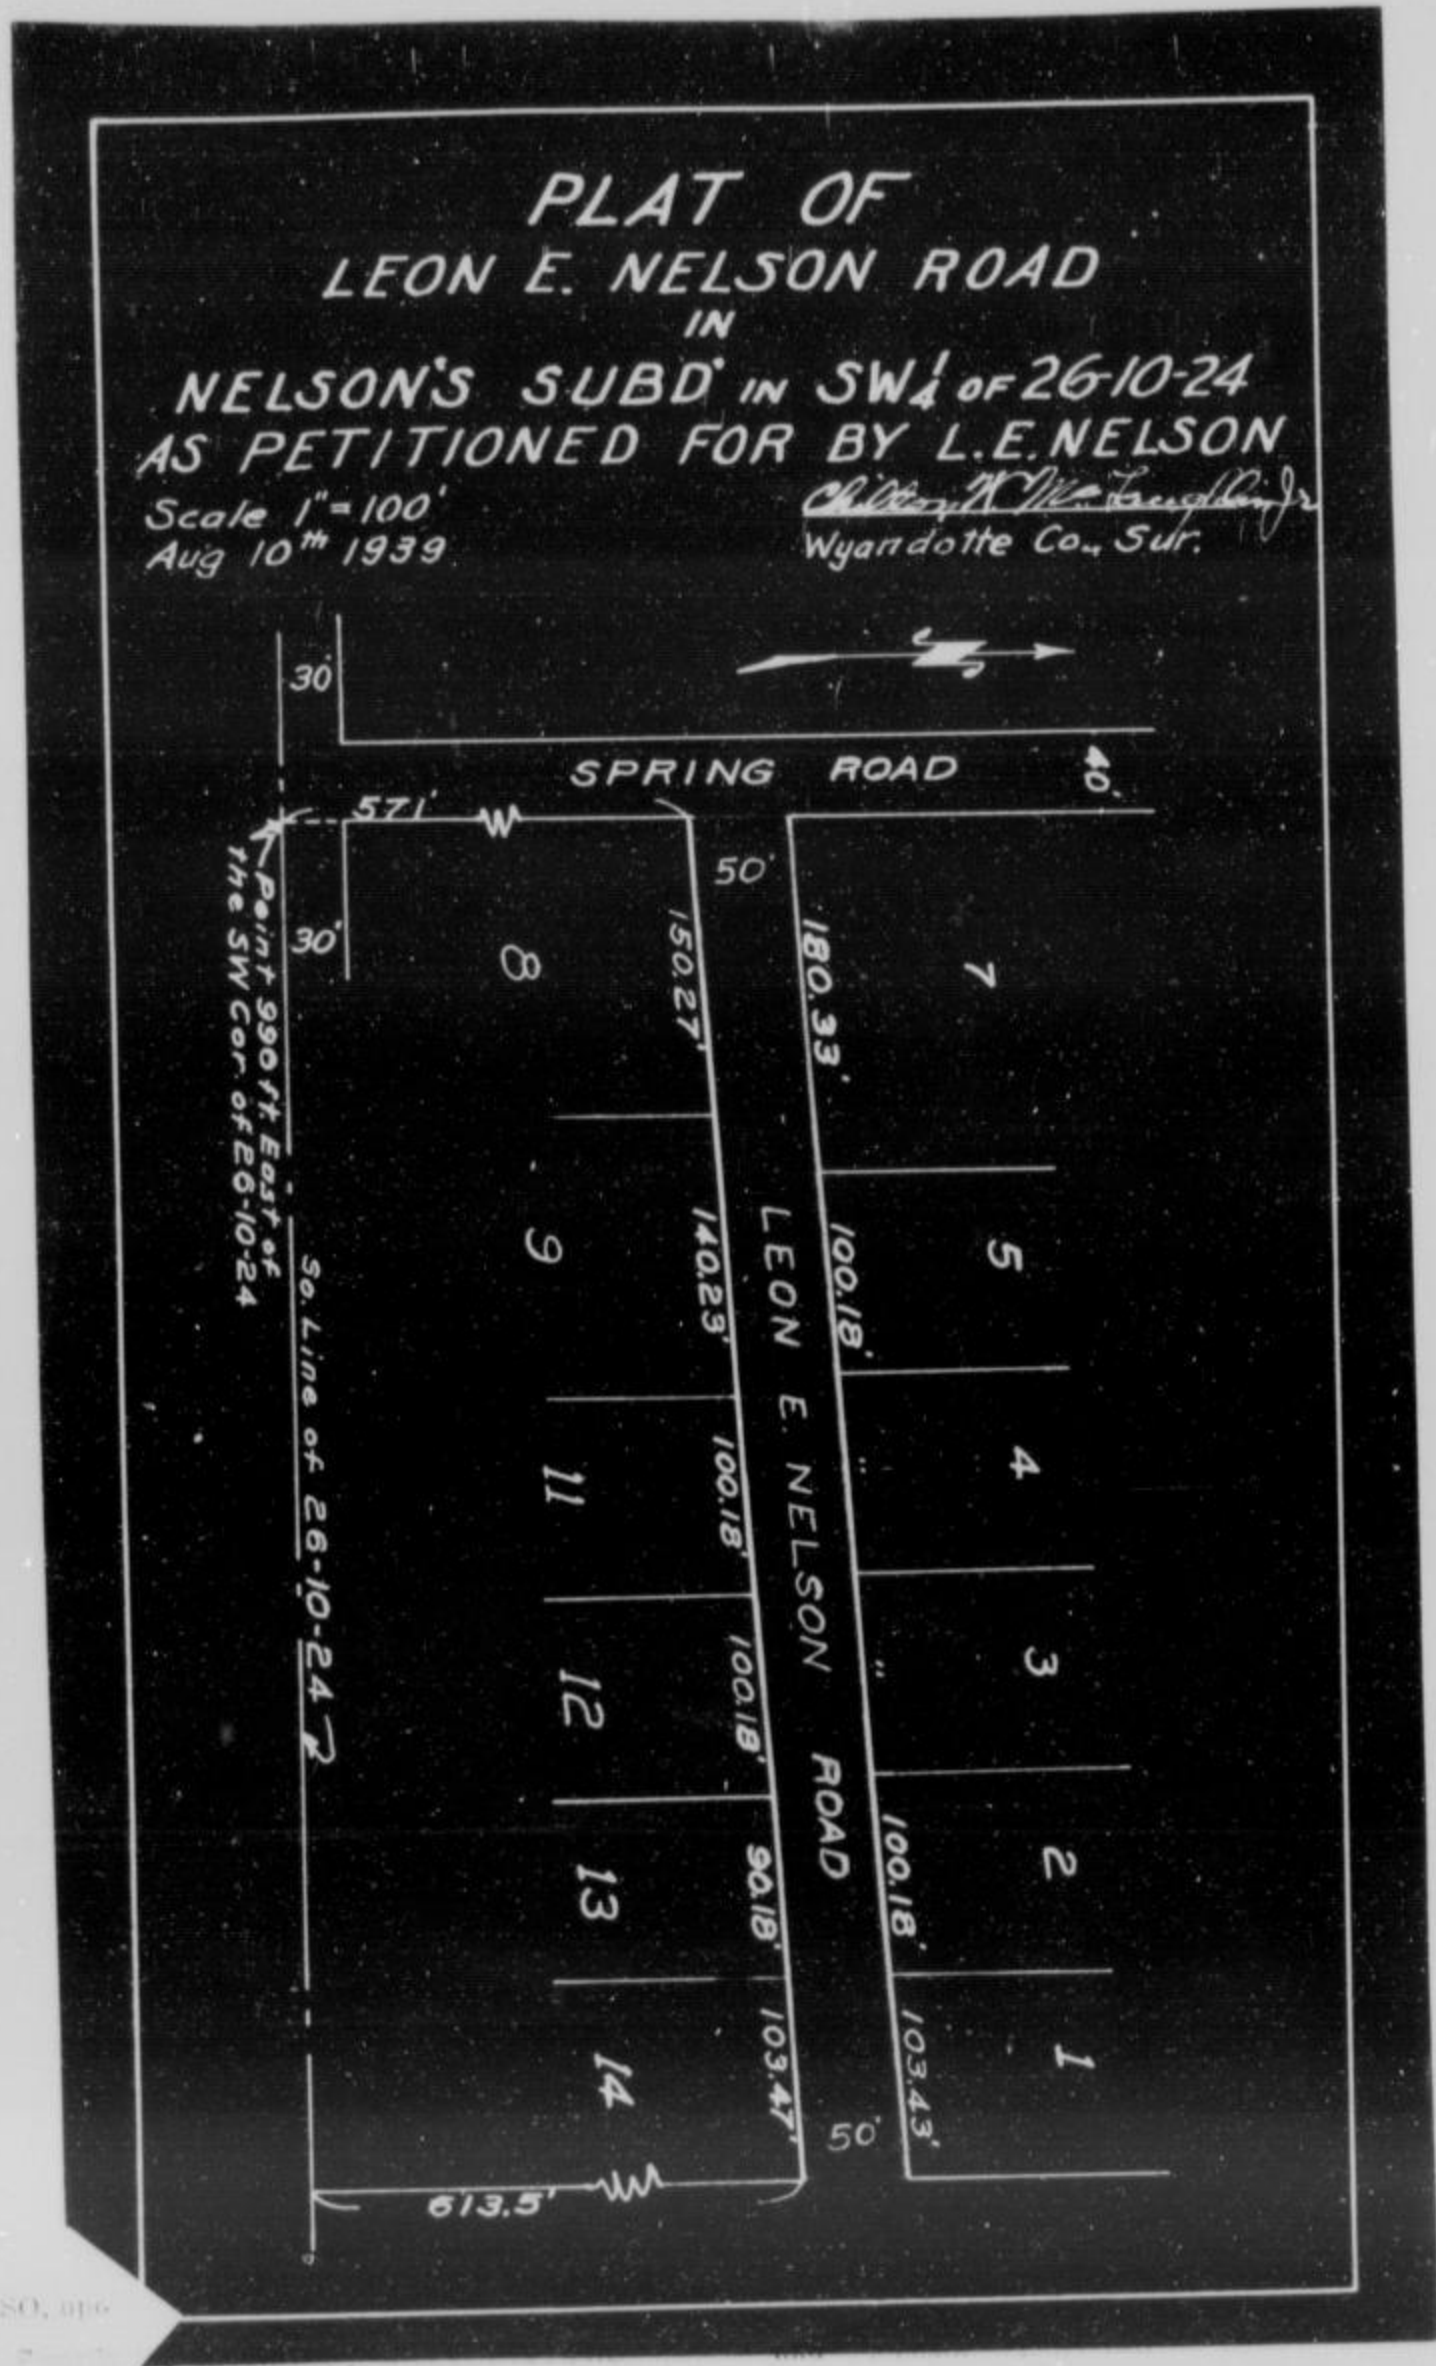 PLAT OF
LEON E. NELSON ROAD
IN
NELSON'S SUBD. IN SW 1/4 OF 26-10-24
AS PETITIONED FOR BY L.E. NELSON
Scale 1" = 100'
Aug 10th 1939
Wyandotte Co., Sur.
30'
SPRING ROAD
40'
571'
50'
Point 990 ft. East of
the SW Cor. of 26-10-24
30'
8
150.27'
180.33'
7
So. Line of 26-10-24
9
140.23'
LEON E. NELSON ROAD
100.18'
5
11
100.18'
"
4
12
100.18'
"
3
13
90.18'
100.18'
2
14
103.47'
103.43'
1
50'
613.5'